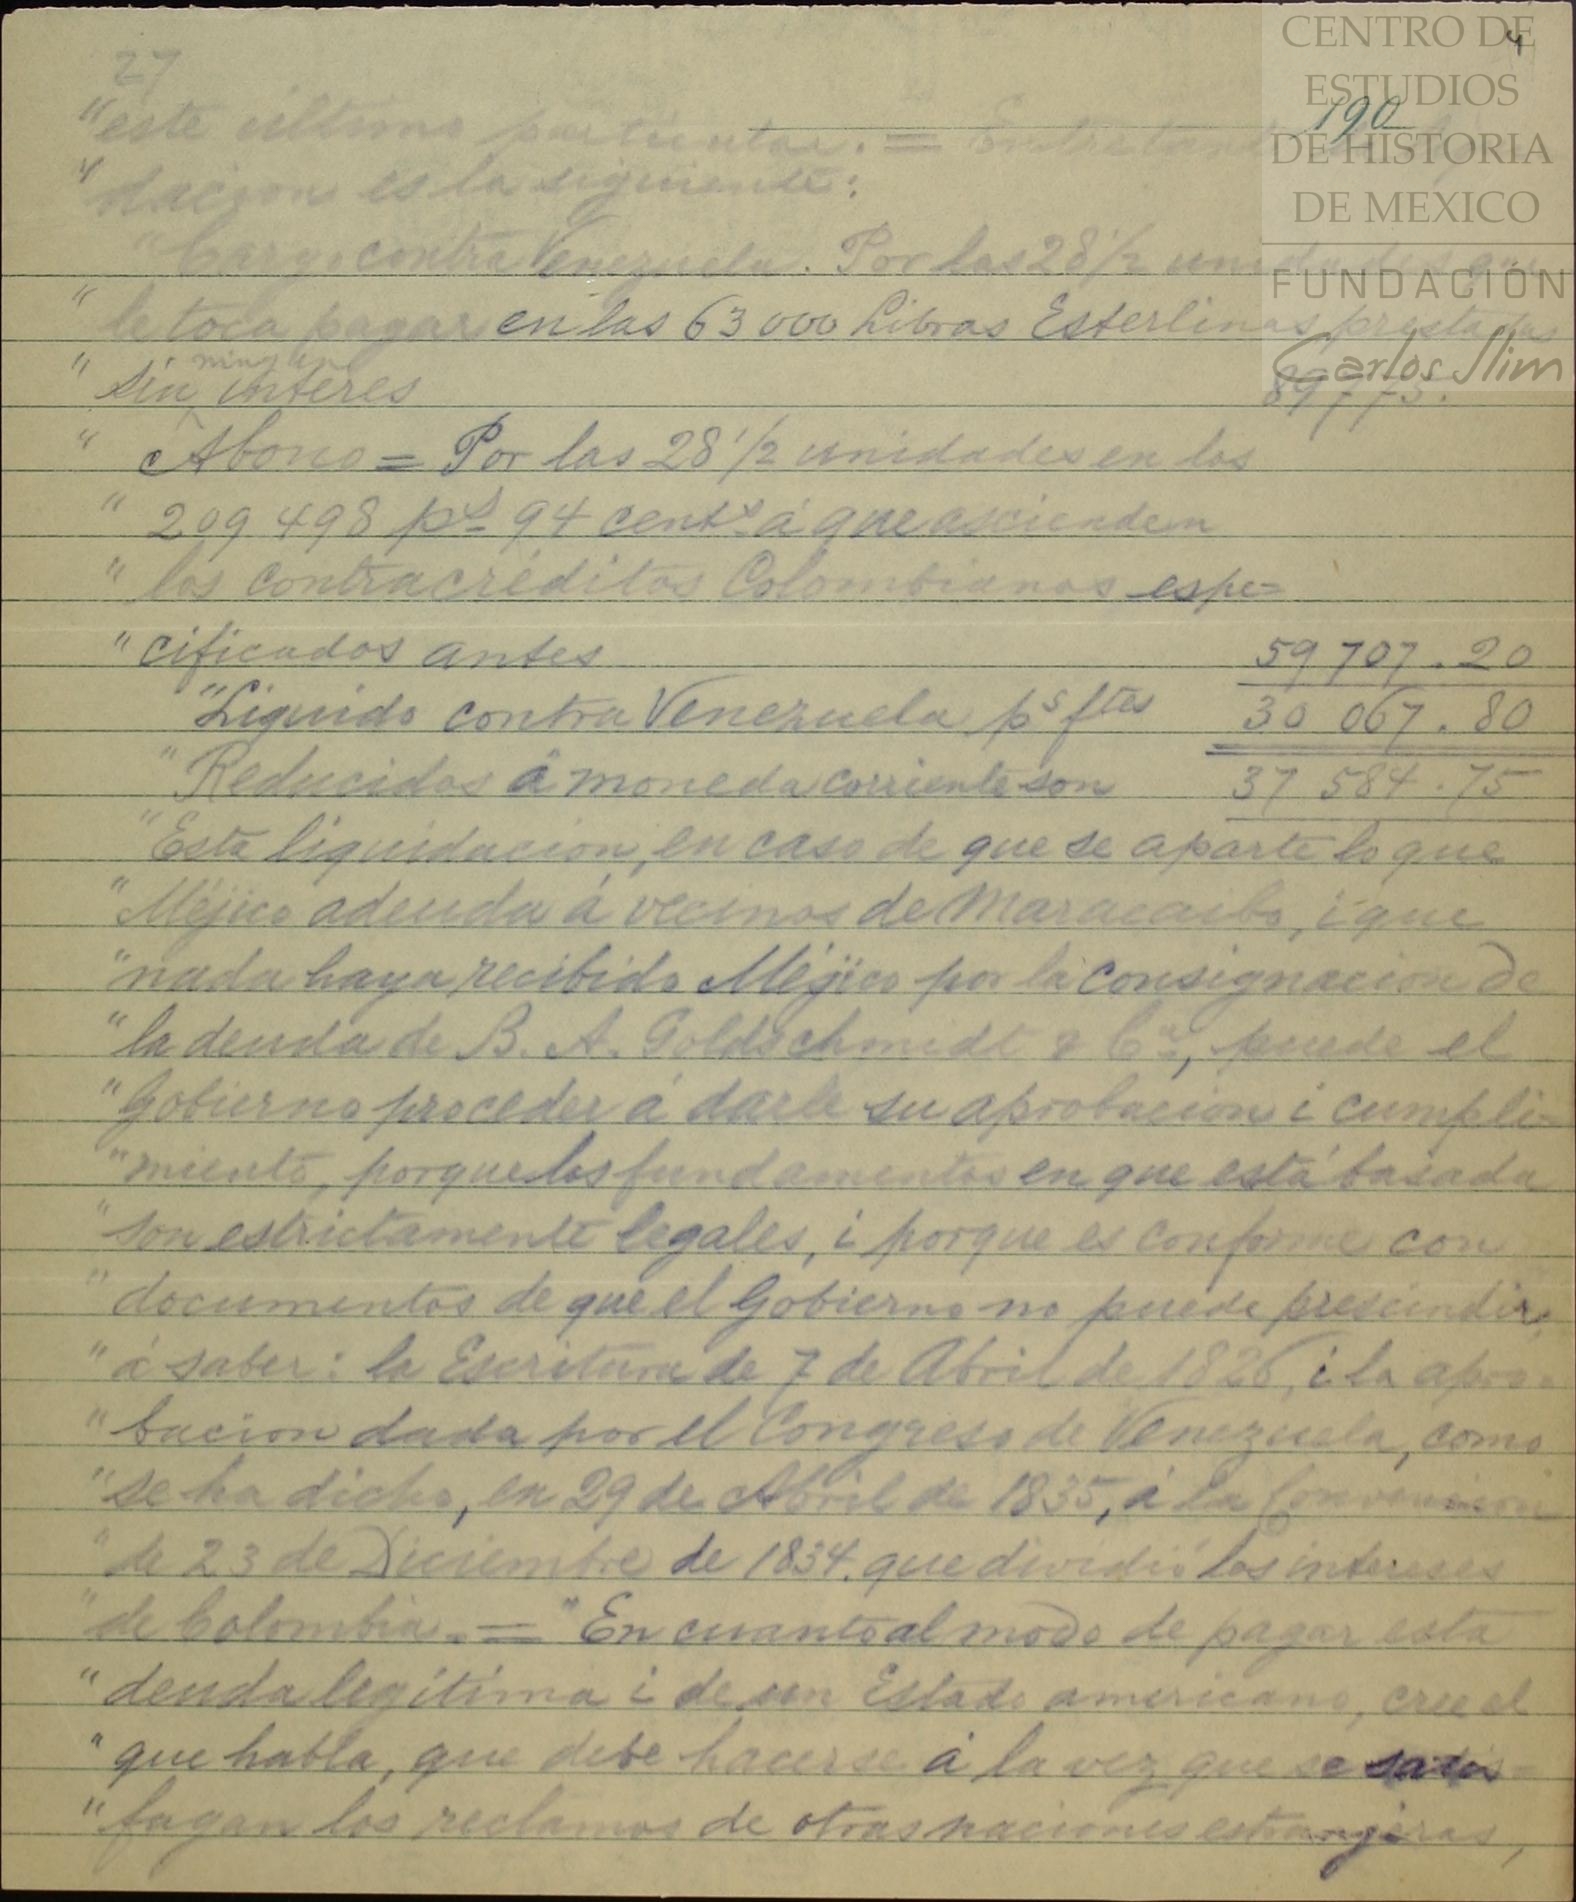 27
4
190
CENTRO DE
ESTUDIOS
DE HISTORIA
DE MEXICO
FUNDACIÓN
Carlos Slim
"este último particular. = Entretanto
"dacion es la siguiente:
"Cargo contra Venezuela. Por las 28 1/2 unidades que
"le toca pagar en las 63 000 Libras Esterlinas prestadas
"sin ningun interes 89 775.
"Abono = Por las 28 1/2 unidades en los
"209 498 ps 94 cents á que ascienden
"los contracréditos Colombianos espe=
"cificados antes 59 707.20
"Líquido contra Venezuela ps ftes 30 067.80
"Reducidos á moneda corriente son 37 584.75
"Esta liquidacion, en caso de que se aparte lo que
"Méjico adeuda á vecinos de Maracaibo, i que
"nada haya recibido Méjico por la consignacion de
"la deuda de B. A. Goldschmidt & Cª, puede el
"Gobierno proceder á darle su aprobacion i cumpli-
"miento, porque los fundamentos en que está basada
"son estrictamente legales, i porque es conforme con
"documentos de que el Gobierno no puede prescindir,
"á saber: la Escritura de 7 de Abril de 1826, i la apro-
"bacion dada por el Congreso de Venezuela, como
"se ha dicho, en 29 de Abril de 1835, á la Convencion
"de 23 de Diciembre de 1834. que dividió los intereses
"de Colombia. = "En cuanto al modo de pagar esta
"deuda legítima i de un Estado americano, cree el
"que habla, que debe hacerse á la vez que se satis-
"fagan los reclamos de otras naciones estranjeras,